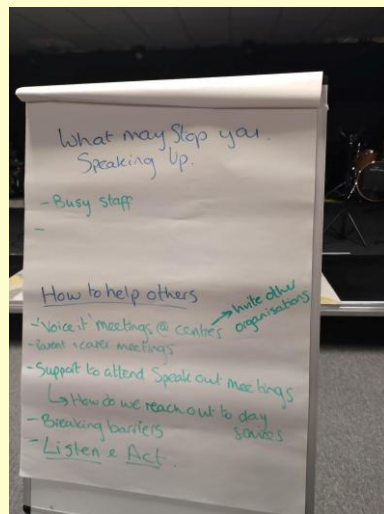 What may Stop you.
Speaking Up.
- Busy staff
-
How to help others
→ Invite other
organisations
- 'Voice it' meetings @ centres
- Parent & carer meetings
- Support to attend Speak out meetings
↳ How do we reach out to day
services
- Breaking barriers
- Listen & Act.